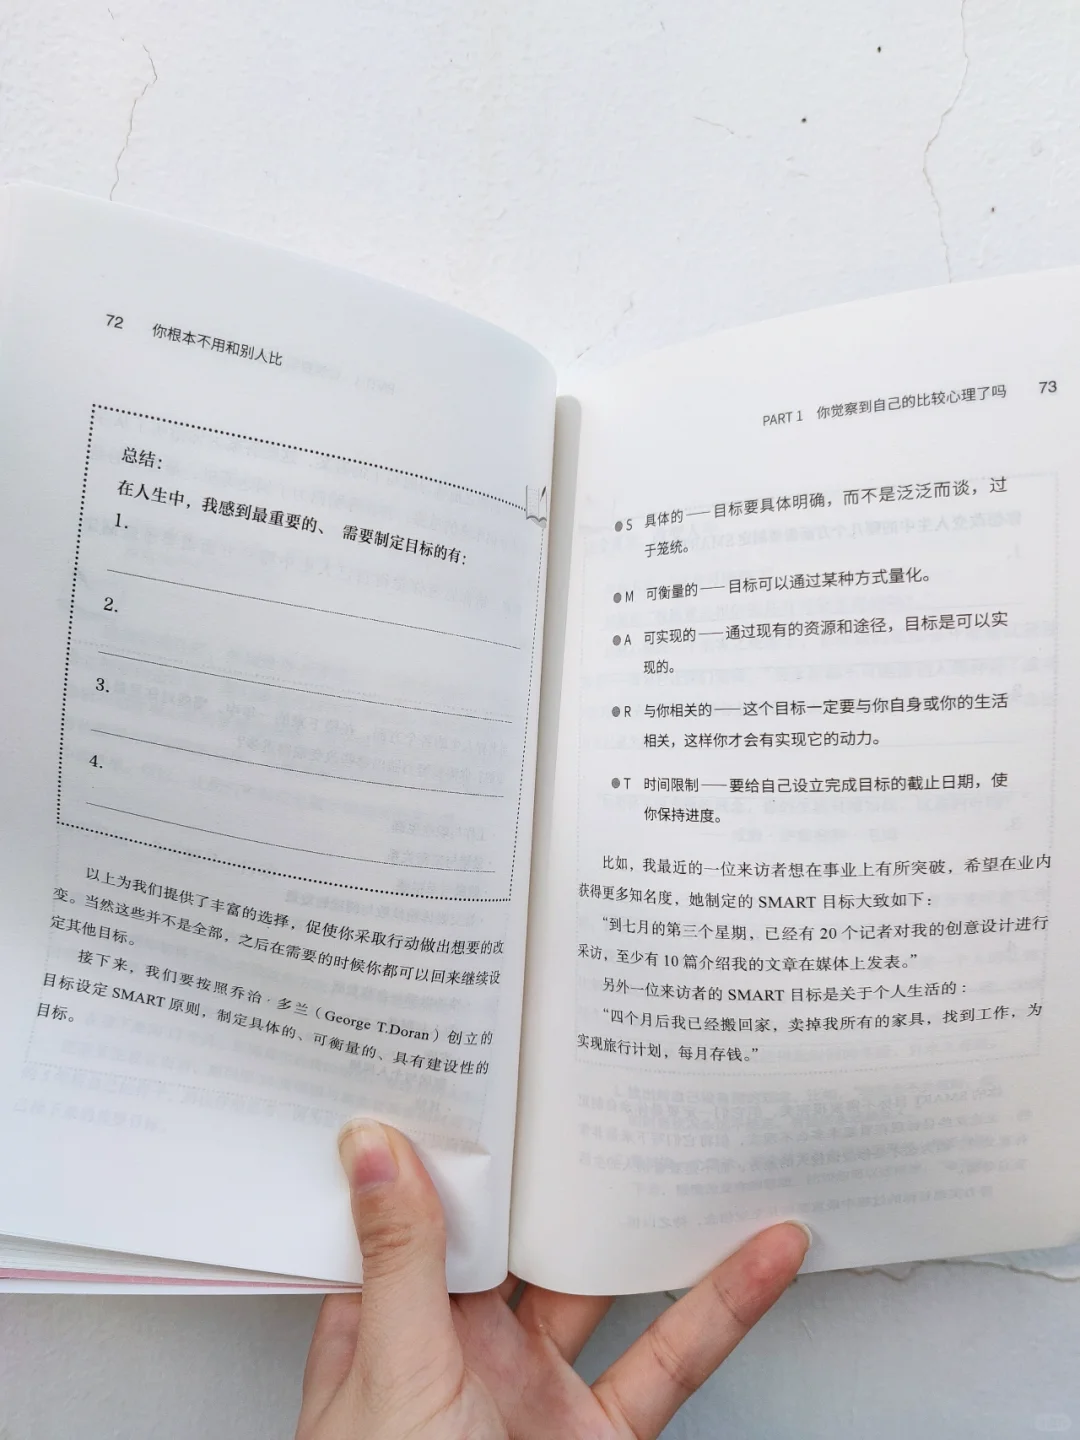 72 你根本不用和别人比
总结：
在人生中，我感到最重要的、 需要制定目标的有：
1.
2.
3.
4.
以上为我们提供了丰富的选择，促使你采取行动做出想要的改
变。当然这些并不是全部，之后在需要的时候你都可以回来继续设
定其他目标。
接下来，我们要按照乔治·多兰（George T.Doran）创立的
目标设定 SMART 原则，制定具体的、可衡量的、具有建设性的
目标。
PART 1 你觉察到自己的比较心理了吗 73
●S 具体的——目标要具体明确，而不是泛泛而谈，过
于笼统。
●M 可衡量的——目标可以通过某种方式量化。
●A 可实现的——通过现有的资源和途径，目标是可以实
现的。
●R 与你相关的——这个目标一定要与你自身或你的生活
相关，这样你才会有实现它的动力。
●T 时间限制——要给自己设立完成目标的截止日期，使
你保持进度。
比如，我最近的一位来访者想在事业上有所突破，希望在业内
获得更多知名度，她制定的 SMART 目标大致如下：
“到七月的第三个星期，已经有 20 个记者对我的创意设计进行
采访，至少有 10 篇介绍我的文章在媒体上发表。”
另外一位来访者的 SMART 目标是关于个人生活的：
“四个月后我已经搬回家，卖掉我所有的家具，找到工作，为
实现旅行计划，每月存钱。”